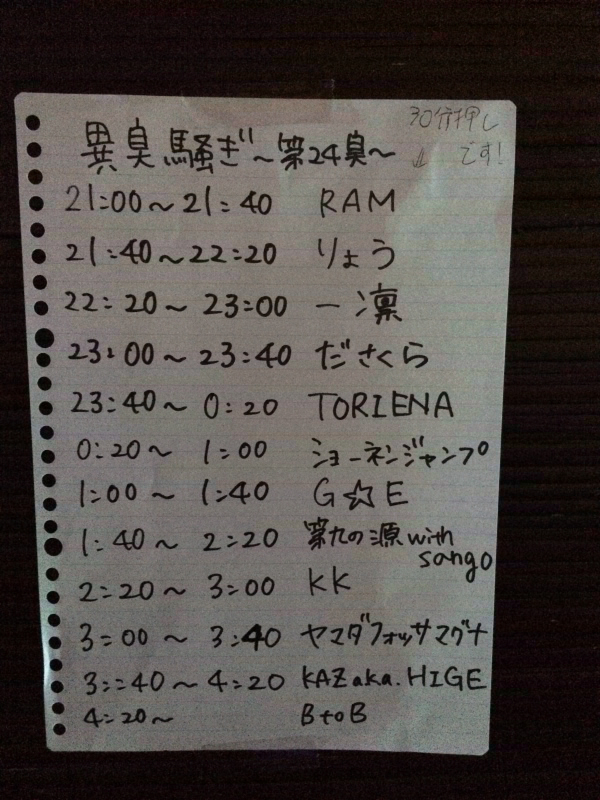 30分押し
です!
↓
異臭騒ぎ~第24臭~
21:00~21:40 RAM
21:40~22:20 りょう
22:20~23:00 一凛
23:00~23:40 ださくら
23:40~0:20 TORIENA
0:20~1:00 ショーネンジャンプ
1:00~1:40 G☆E
1:40~2:20 第九の源 with
sango
2:20~3:00 KK
3:00~3:40 ヤマダフォッサマグナ
3:40~4:20 KAZ aka. HIGE
4:20~ BtoB